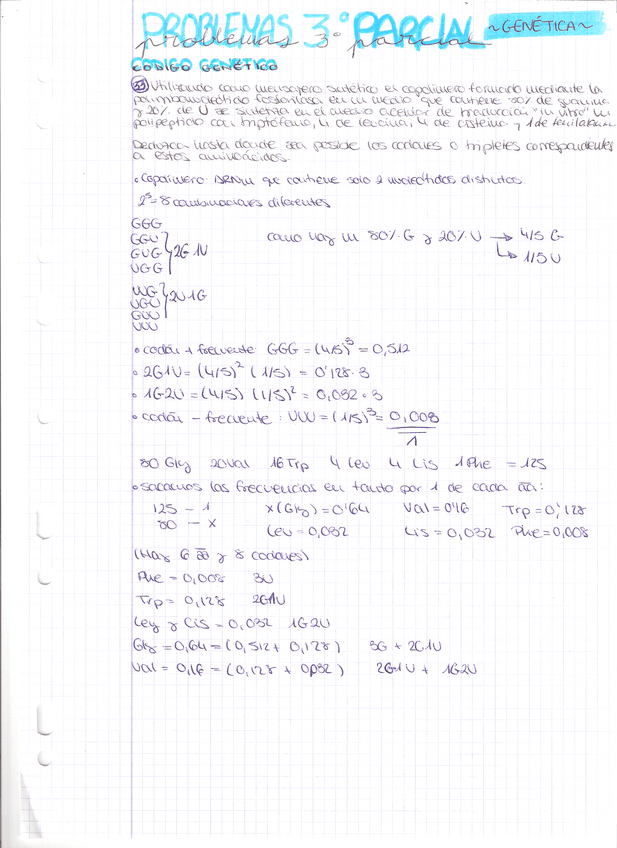 PROBLEMAS 3º PARCIAL ~GENÉTICA~
problemas 3º parcial
CÓDIGO GENÉTICO
33 Utilizando como mensajero sintético el copolimero formado mediante la
polirribonucleótido fosforilasa en un medio que contiene 80% de guanina
y 20% de U se sintetiza en el medio acelular de traducción "in vitro" un
polipéptido con triptófano, 4 de leucina, 4 de cisteína y 1 de fenilalanina.
Deduzca hasta donde sea posible los codones o tripletes correspondientes
a estos aminoácidos.
• Copolimero: ARNm que contiene solo 2 nucleótidos distintos.
2³=8 combinaciones diferentes
GGG
GGU
GUG 2G 1U
UGG
UUG
UGU 2U 1G
GUU
UUU
como hay un 80% G y 20% U → 4/5 G
↳ 1/5 U
• codón + frecuente: GGG = (4/5)³ = 0,512
• 2G1U = (4/5)² (1/5) = 0'128 · 3
• 1G2U = (4/5) (1/5)² = 0,032 · 3
• codón - frecuente: UUU = (1/5)³ = 0,008
1
80 Gly 20Val 16Trp 4 Leu 4 Cis 1Phe = 125
• sacamos las frecuencias en tanto por 1 de cada aa:
125 - 1 x(Gly) = 0'64 Val = 0'16 Trp = 0,'128
80 - x Leu = 0,032 Cis = 0,032 Phe = 0,008
(Hay 6 aa y 8 codones)
Phe = 0,008 3U
Trp = 0,128 2G1U
Ley y Cis = 0,032 1G2U
Gly = 0,64 = (0,512 + 0,128) 3G + 2G1U
Val = 0,16 = (0,128 + 0,032) 2G1U + 1G2U